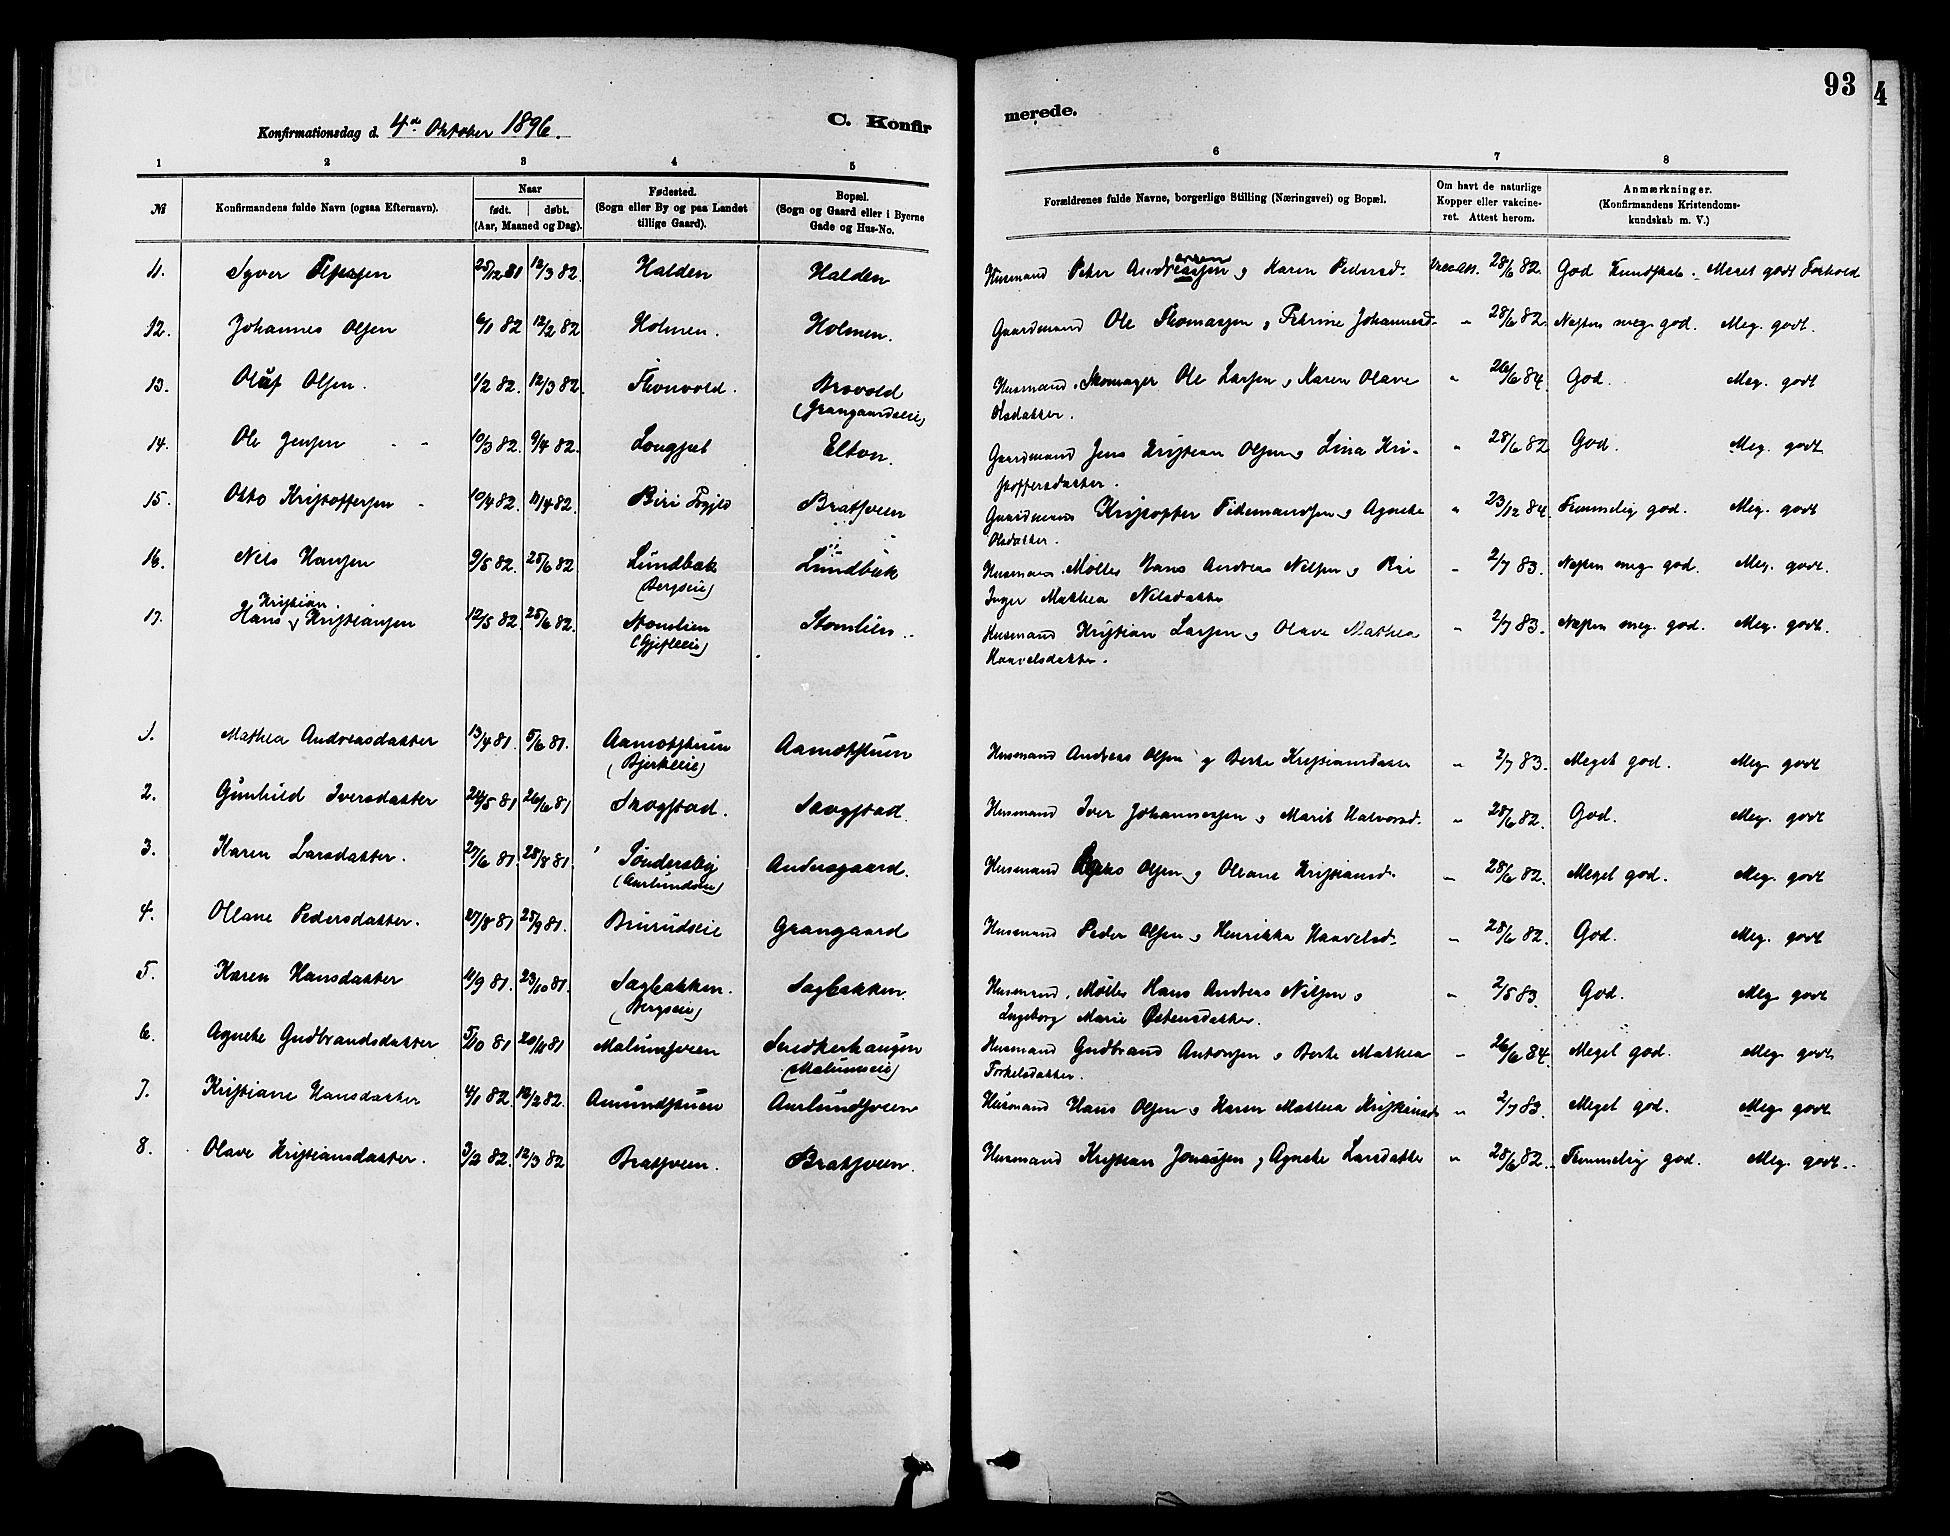 93
4
Konfirmationsdag d. 4de Oktober 1896.
C. Konfirmerede.
1 2 3 4 5 6 7 8
№ Konfirmandens fulde Navn (ogsaa Efternavn). Naar født. døbt. (Aar, Maaned og Dag). Fødested. (Sogn eller By og paa Landet tillige Gaard). Bopæl. (Sogn og Gaard eller i Byerne Gade og Hus-No. Forældrenes fulde Navne, borgerlige Stilling (Næringsvei) og Bopæl. Om havt de naturlige Kopper eller vakcineret. Attest herom. Anmærkninger. (Konfirmandens Kristendomskundskab m. V.)
11. Syver 25/12 81 12/3 82. Halden Halden Husmand Peter Andreassen g Karen Pedersd. 28/6 82. God Kundskab. Meget godt Forhold
12. Johannes Olsen 6/1 82 12/2 82 Holmen. Holmen. Gaardmand Ole Thomassen g Petrine Johannesd. " 28/6 82. Næsten meg god. Meg. godt.
13. Oluf Olsen. 1/2 82. 12/3 82. Thonvold. Brovold (Grangaardseie) Husmand, Skomager Ole Larsen g Karen Olave Olsdatter. " 26/6 84. God. Meg. godt
14. Ole Jensen 10/3 82. 9/4 82. Elton. Gaardmand Jens Kristian Olsen g Lina Kristoffersdatter. " 28/6 82 God. Meg. godt
15. Otto Kristoffersen 10/4 82. 11/4 82. Biri Bratsveen Gaardmand Kristoffer Tidemandsen g Agnete Olsdatter. " 23/12 84. Temmelig god. Meg. godt
16. Nils Hansen 9/5 82. 25/6 82 Lundbak (Bergseie) Lundbak Husmand, Møller Hans Andreas Nilsen g Inger Mathea Nilsdatter " 2/7 83. Næsten meg god. Meg. godt.
17. Hans Kristian Kristiansen 12/5 82. 25/6 82. Stomlien Stomlien. Husmand Kristian Larsen g Olave Mathea Haavelsdatter. " 2/7 83. Næsten meg. god. Meg. godt.
1. Mathea Andreasdatter 13/4 81. 5/6 81. Aamotstuen (Bjerkeeie) Aamotstuen Husmand Andreas Olsen g Berte Kristiansdatter " 2/7 83. Meget god. Meg godt
2. Gunhild Iversdatter 24/5 81 26/6 81 Skogstad. Skogstad. Husmand Iver Johannessen g Marit Halvorsd. " 28/6 82. God. Meg. godt
3. Karen Larsdatter. 27/6 81. 28/8 81. Andersgaard. Husmand Olsen g Oleane Kristiansd. " 28/6 82. Meget god. Meg. godt
4. Oleane Pedersdatter. 27/8 81 25/9 81. Brurudseie Grangaard Husmand Peder Olsen g Henrikka Haavelsd. " 28/6 82. God. Meg. godt
5. Karen Hansdatter 11/9 81. 23/10 81. Sagbakken. (Bergseie) Sagbakken. Husmand, Møller Hans Andreas Nilsen g Ingeborg Marie Østensdatter. " 2/5 83. God. Meg godt
6. Agnete Gudbrandsdatter 5/10 81 20/11 81 Malumsveen Snedkerhaugen (Malumseie) Husmand Gudbrand Antonsen g Berte Mathea Torkelsdatter. " 26/6 84. Meget god. Meg godt
7. Kristiane Hansdatter 4/1 82. 12/2 82. Amundstuen Aurlundsveen Husmand Hans Olsen g Karen Mathea Kristiansd. " 2/7 83. Meget god. Meg godt
8. Olave Kristiansdatter. 3/2 82. 12/3 82 Bratsveen. Bratsveen. Husmand Kristian Jonassen g Agnete Larsdatter " 28/6 82. Temmelig god. Meg. godt.